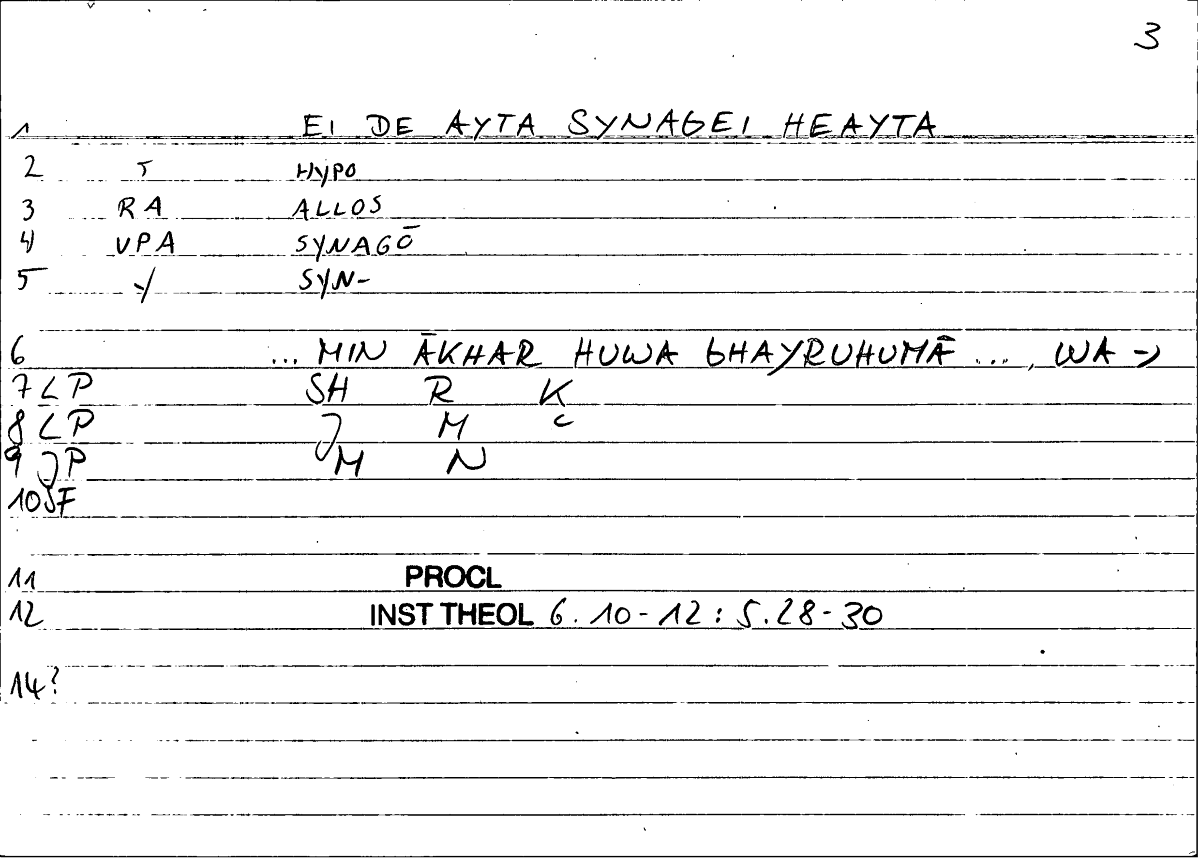 3
1 EI DE AYTA SYNAGEI HEAYTA
2 HYPO
3 RA ALLOS
4 VPA SYNAGŌ
5 SYN-
6 ... MIN ĀKHAR HUWA GHAYRUHUMĀ ..., WA →
7 L P SH R K
8 L P J M C
9 J P M N
10 JF
11 PROCL
12 INST THEOL 6.10-12: 5.28-30
14?